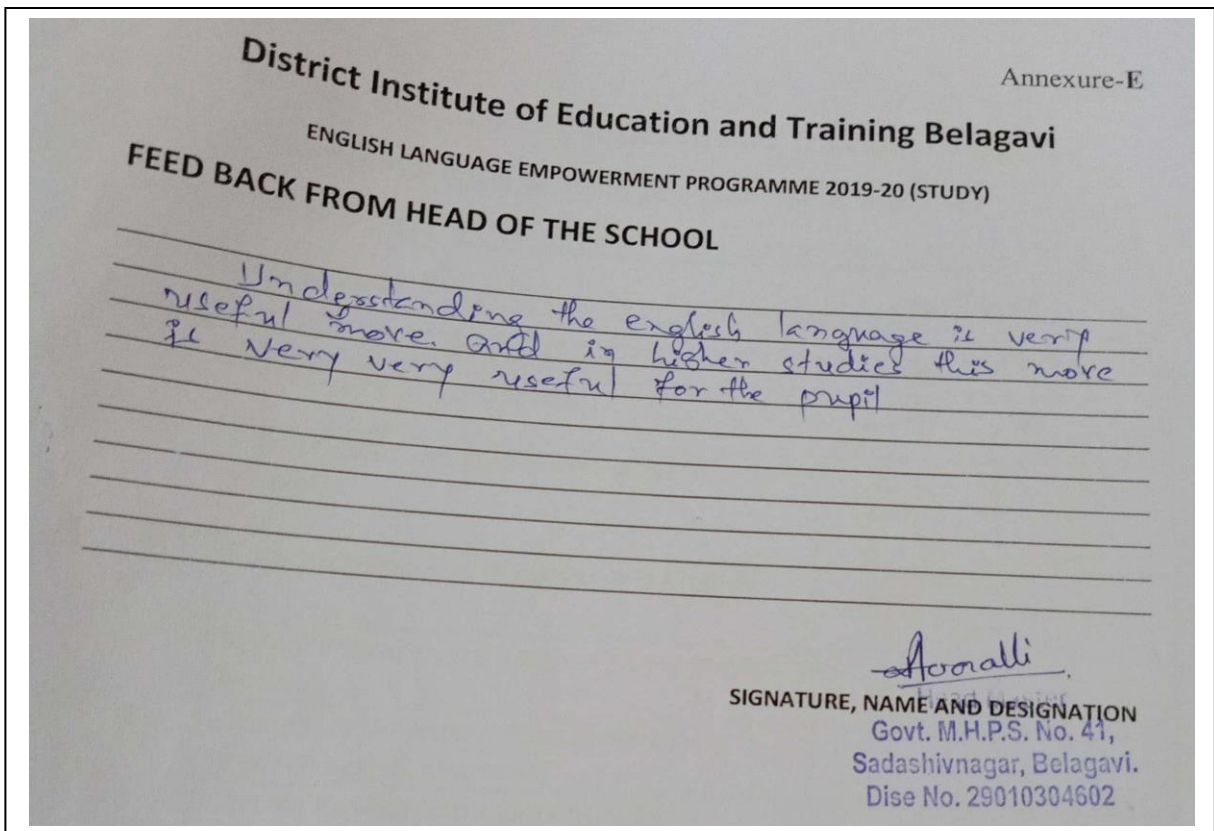 Annexure-E
District Institute of Education and Training Belagavi
ENGLISH LANGUAGE EMPOWERMENT PROGRAMME 2019-20 (STUDY)
FEED BACK FROM HEAD OF THE SCHOOL
Understanding the english language is very
useful move. and in higher studies this move
is very very useful for the pupil
SIGNATURE, NAME AND DESIGNATION
Govt. M.H.P.S. No. 41,
Sadashivnagar, Belagavi.
Dise No. 29010304602